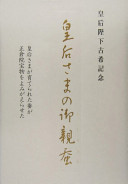 皇后陛下古希記念
皇后さまの御親蚕
皇后さまが育てられた蚕が
正倉院宝物をよみがえらせた